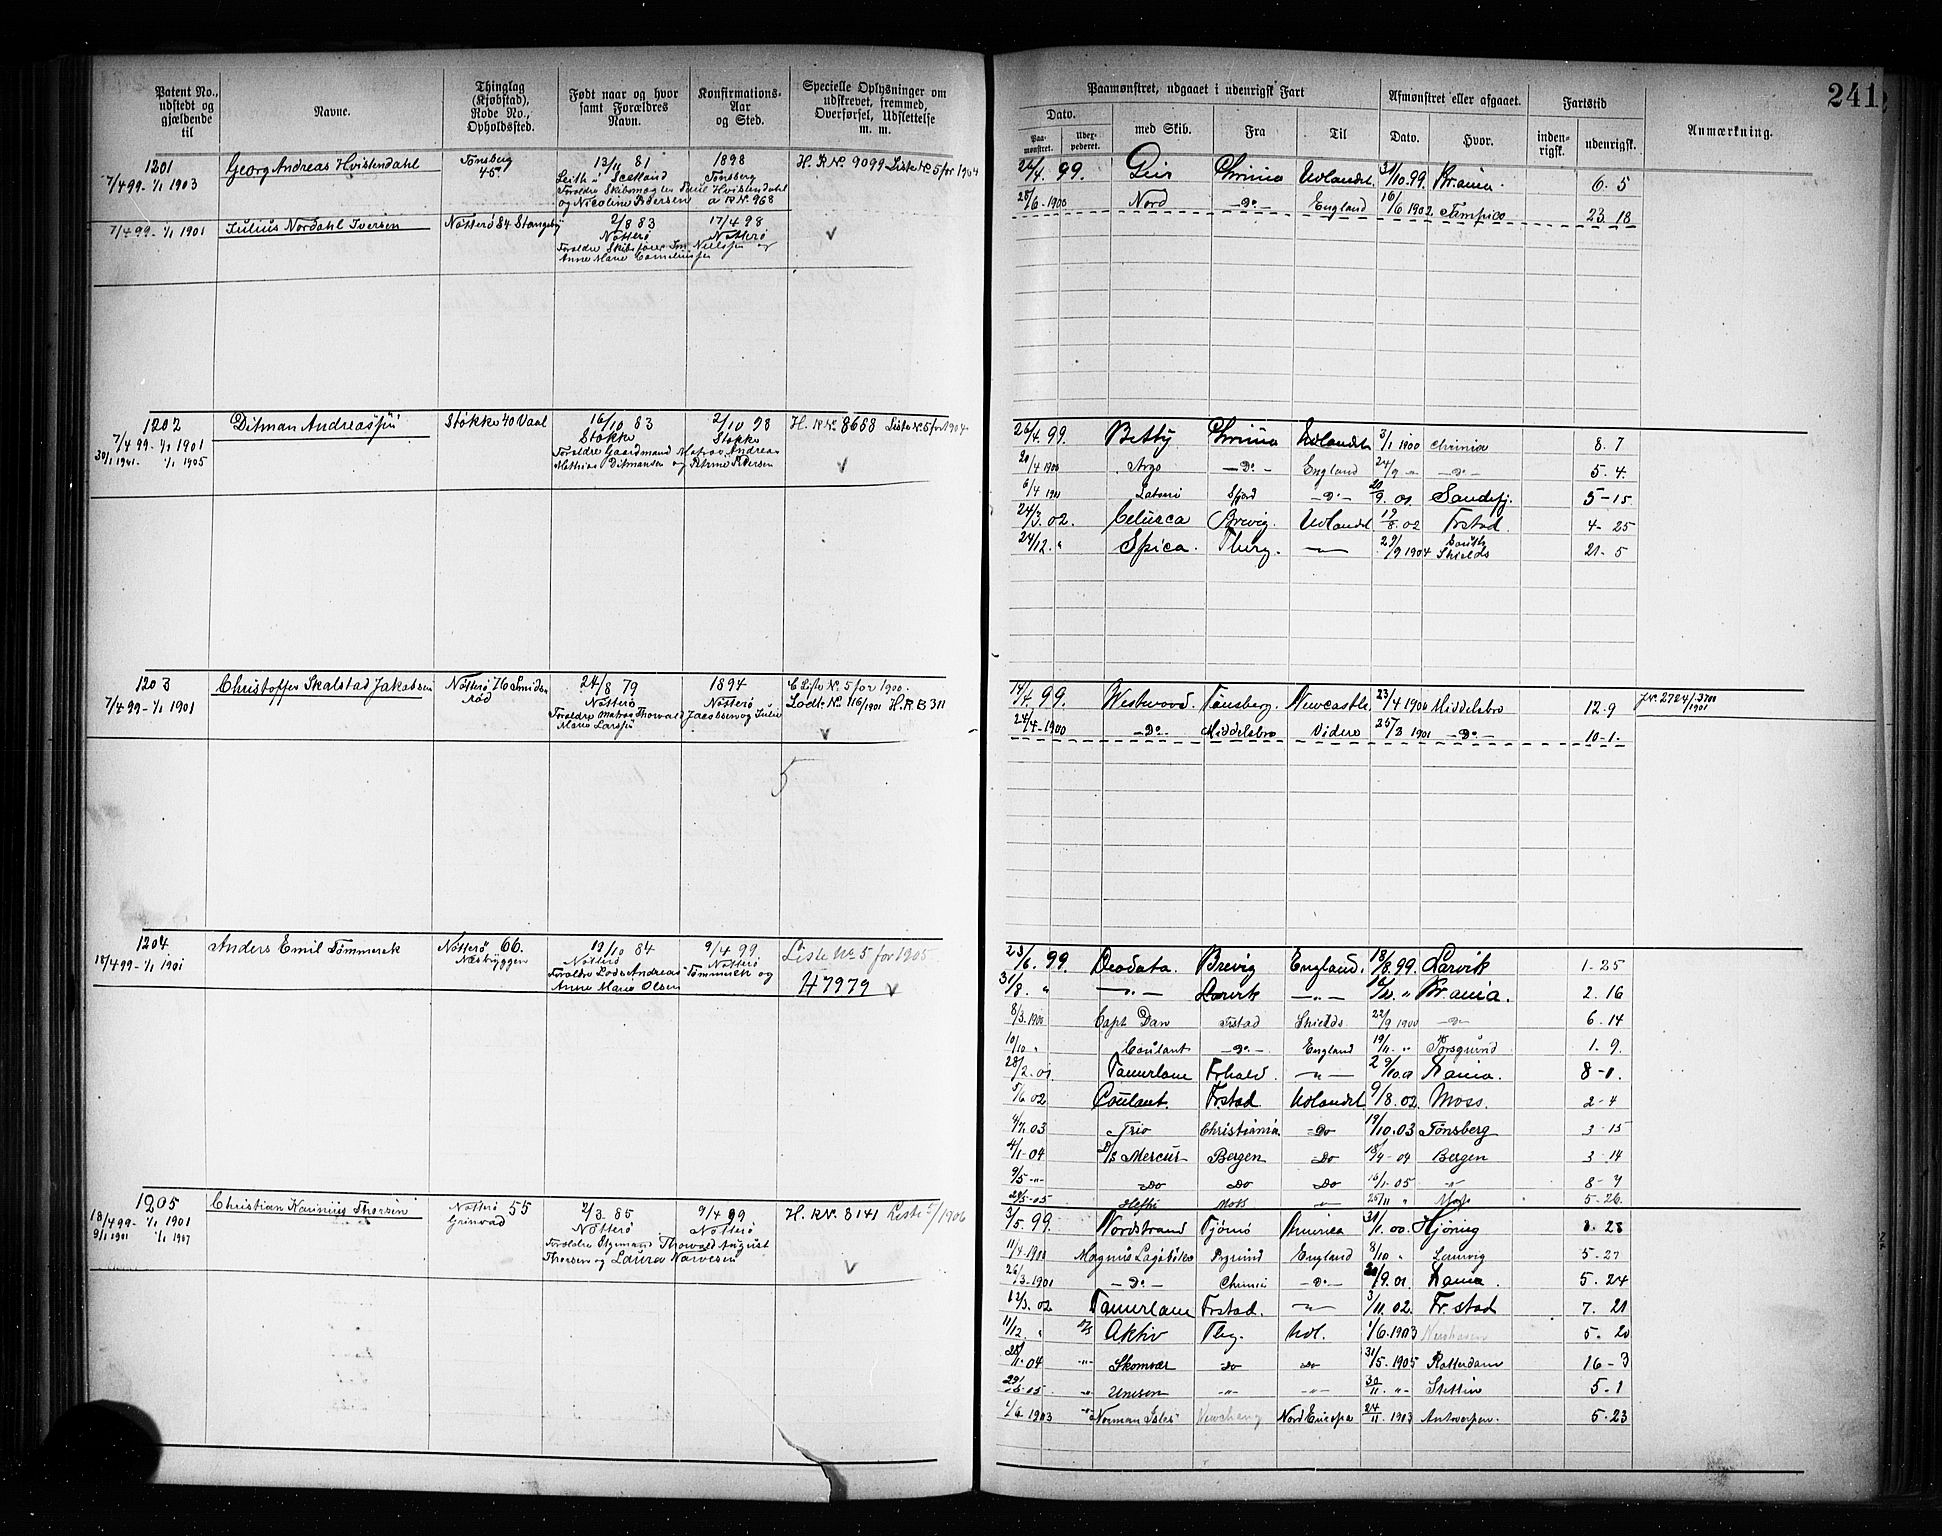 241
Patent No., udstedt og gjældende til
Navne.
Thinglag (Kjøbstad), Rode No., Opholdssted.
Født naar og hvor samt Forældres Navn.
Konfirmations-Aar og Sted.
Specielle Oplysninger om udskrevet, fremmed, Overførsel, Udslettelse m. m.
Paamønstret, udgaaet i udenrigsk Fart
Afmønstret eller afgaaet.
Fartstid
Anmærkning.
Dato.
Paa-mønstret.
med Skib.
Fra
Til
Dato.
Hvor.
inden-rigsk.
udenrigsk.
1201
7/4 99 - 1/1 1903
Georg Andreas Hvistendahl
Tønsberg 45
13/11 81
Leith i Scotland
1898
Tønsberg
og Nicoline Pedersen a R.N. 968
H. R No. 9099 Liste No. 5 for 1904
7/4 99 - 1/1 1901
Julius Nordahl Iversen
Nøtterø 84 Stangeby
2/8 83
Nøtterø
17/4 98
Nøtterø
26/4. 99. Geir Chrania Udlandet 31/10. 99. Kr.ania. 6. 5
28/6 - 1900 Nord - Do - England 16/6 1902 Tampico 23. 18
1202
7/4 99 - 1/1 1901
30/1 1901 - 1/1 1905
Ditman Andreassen
Stokke 40 Vaal
16/10 83
Stokke
Forældre Gaardmand Matros Andreas
Mathias Ditmansen og Petrine Pedersen
2/10 98
Stokke
H. R No. 8668 Liste No. 5 for 1904
26/4 99. Betty Chrania Udlandet 3/1 1900 Chrania 8. 7
20/4 1900 Argo - Do - England 24/9 " - Do - 5. 4.
6/4 1901 - Do - 20/9. 01 Sandefj. 5 - 15
24/3. 02. Brevig. Udlandet 17/8 02 Frstad. 4 - 25
24/12. " Spica. Tberg. 29/9 1904 South Shields 21 - 5
1203
7/4 99 - 1/1 1901
Christoffer Skalstad Jakobsen
Nøtterø 76 Smidsrød
24/8 79
Nøtterø
Forældre Matros Thorvald Jacobsen og Julie
Marie Larsen
1894
Nøtterø
Liste No. 5 for 1900.
Lods No. 116/1901 H. R B 311
14/4. 99. Westwood. Tønsberg. Newcastle 23/4 1900 Middelsbro 12. 9
24/4 - 1900 - Do - Middelsbro Viders 25/3 1901 - Do - 10 - 1 -
J.N. 2724/1901
5
1204
18/4 99 - 1/1 1901
Anders Emil Tømmerek
Nøtterø 66.
Næsbyggen
19/10 84
Nøtterø
Forældre Lods Andreas Tømmerek og
Anne Marie Olsen
9/4 99
Nøtterø
Liste No. 5 for 1905
H 7979
23/6. 99. Deodata. Brevig England. 18/8. 99. Larvik 1 - 25
31/8. " - " - Larvik - " - Kr.ania. 2. 16
8/3. 1900 Capt Dan Frstad Shields 22/9 1900 - Do - 6. 14
10/10 " Coulant - Do - England 19/11. " Porsgrund 1. 9.
28/2. 01 Tamerlane Frhald. - " - 29/10. 01 Kr.ania. 8 - 1.
5/6 02 Coulant. Frstad Udlandet 9/8. 02. Moss. 2 - 4
4/7. 03 Trio Christiania - Do 19/10. 03 Tønsberg 3. 15
4/1 - 04 D/S Mercur Bergen Do 18/4 - 04 Bergen 3. 14
9/5 - " - Do Do Do 16/1 - 05 " 8 - 7
29/5 - 05 Moss 25/11 " Moss 5 - 26
1205
18/4 99 - 1/1 1901
9/1 1901 1/1 1907
Christian Karinius Thorsen
Nøtterø 55
Grinvad
2/3 85
Nøtterø
Forældre Styrmand Thorvald August
Thorsen og Laura Narvesen
9/4 99
Nøtterø
H. R No. 3141 Liste 5/1906
3/5. 99. Nordstrand Tjømø America 31/1. 00. Hjøring 8. 28
11/4 - 1900 Magnus Lagabøter Pgrund England 8/10 " Laurvig 5 - 27
26/3. 1901 - Do - - Do - /9. 01. Kr.ania. 5. 24
12/3. 02 Tamerlane Frstad. - " - 3/11. 02. Fr.stad 7. 21
11/12. " D/S Aktiv Tbg. Udl. 1/6. 1903 5. 20
28/1. 04 - " - Skomvær Do Do 31/5. 1905 Rotterdam 16 - 3
29/5. 05 - " - Unison - " - - " - 30/11. " - Stettin 5 - 1
1/6 1903 - " - Norman Isles Nord Europa 24/11. 1903 Antwerpen. 5. 23